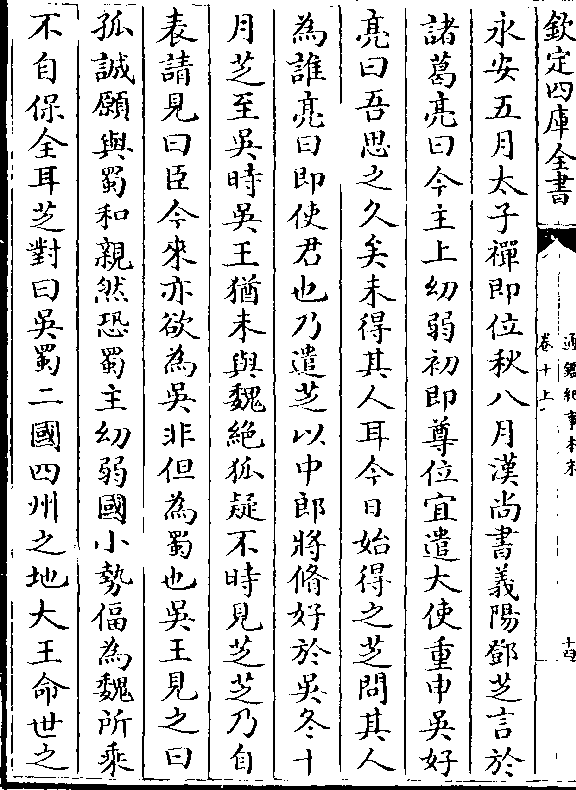 欽定四庫全書
通鑑紀事本末
卷十上
永安五月太子禪即位秋八月漢尚書義陽鄧芝言於
諸葛亮曰今主上幼弱初即尊位宜遣大使重申吳好
亮曰吾思之久矣未得其人耳今日始得之芝問其人
為誰亮曰即使君也乃遣芝以中郎將脩好於吳冬十
月芝至吳時吳王猶未與魏絶狐疑不時見芝芝乃自
表請見曰臣今來亦欲為吳非但為蜀也吳王見之曰
孤誠願與蜀和親然恐蜀主幼弱國小勢偪為魏所乘
不自保全耳芝對曰吳蜀二國四州之地大王命世之